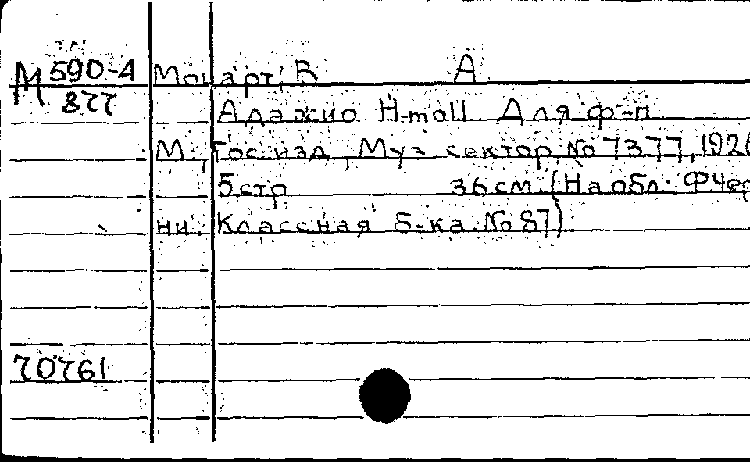 М 590-4
877
Моцарт, В А
Адажио H-moll Для ф-п
М., Гос. изд., Муз сектор, No 7377, 192
5 стр 36 см. (На обл: Ф Чер
ни. Классная б-ка. No 87)
70761